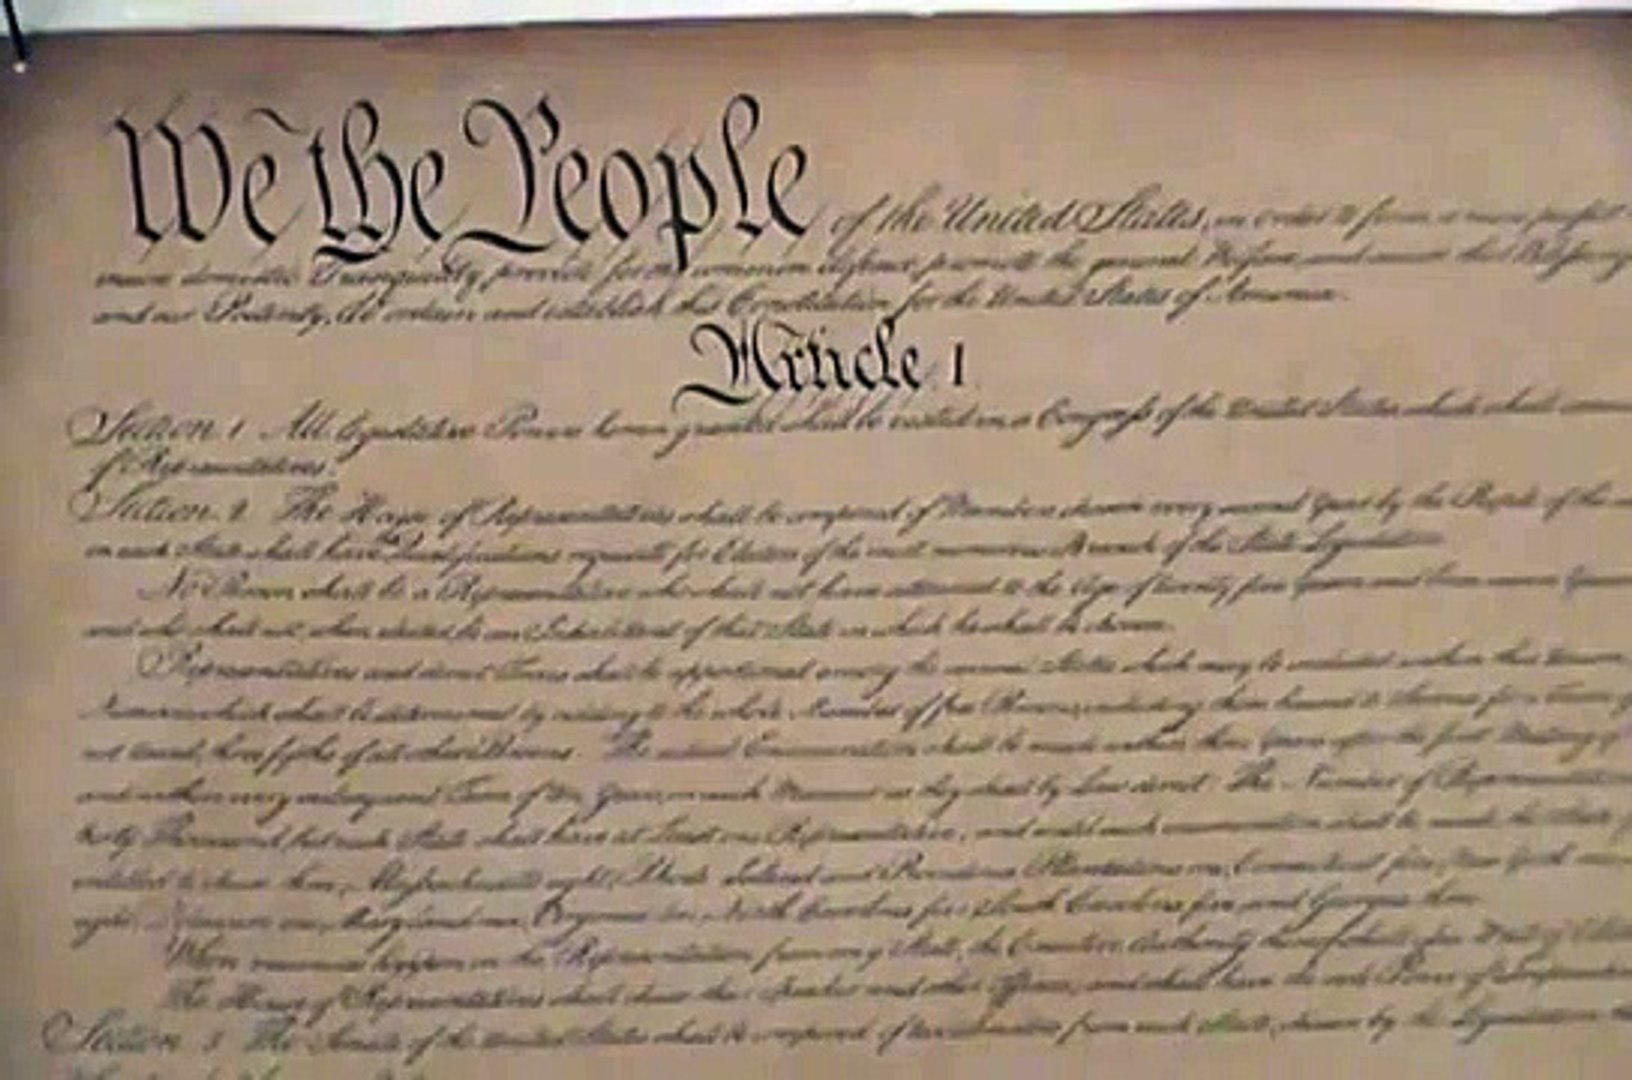 We the People of the United States, in Order to form a more perfect
insure domestic Tranquility, provide for the common defence, promote the general Welfare, and secure the Blessings
and our Posterity, do ordain and establish this Constitution for the United States of America.
Article I
Section. 1 All legislative Powers herein granted shall be vested in a Congress of the United States which shall
of Representatives.
Section. 2 The House of Representatives shall be composed of Members chosen every second Year by the People of the
in each State shall have Qualifications requisite for Electors of the most numerous Branch of the State Legislature
No Person shall be a Representative who shall not have attained to the Age of twenty five Years and been seven Years
and who shall not, when elected, be an Inhabitant of that State in which he shall be chosen.
Representatives and direct Taxes shall be apportioned among the several States which may be included within this Union,
which shall be determined by adding to the whole Number of free Persons, including those bound to Service for a Term of
not taxed, three fifths of all other Persons. The actual Enumeration shall be made within three Years after the first Meeting of
and within every subsequent Term of ten Years, in such Manner as they shall by Law direct. The Number of Representatives
thirty Thousand, but each State shall have at Least one Representative; and until such enumeration shall be made, the State of
entitled to chuse three, Massachusetts eight, Rhode Island and Providence Plantations one, Connecticut five, New York
eight, Delaware one, Maryland six, Virginia ten, North Carolina five, South Carolina five, and Georgia three.
When vacancies happen in the Representation from any State, the Executive Authority thereof shall issue Writs of
The House of Representatives shall chuse their Speaker and other Officers; and shall have the sole Power of Impeachment
Section. 3 The Senate of the United States shall be composed of two Senators from each State, chosen by the Legislature